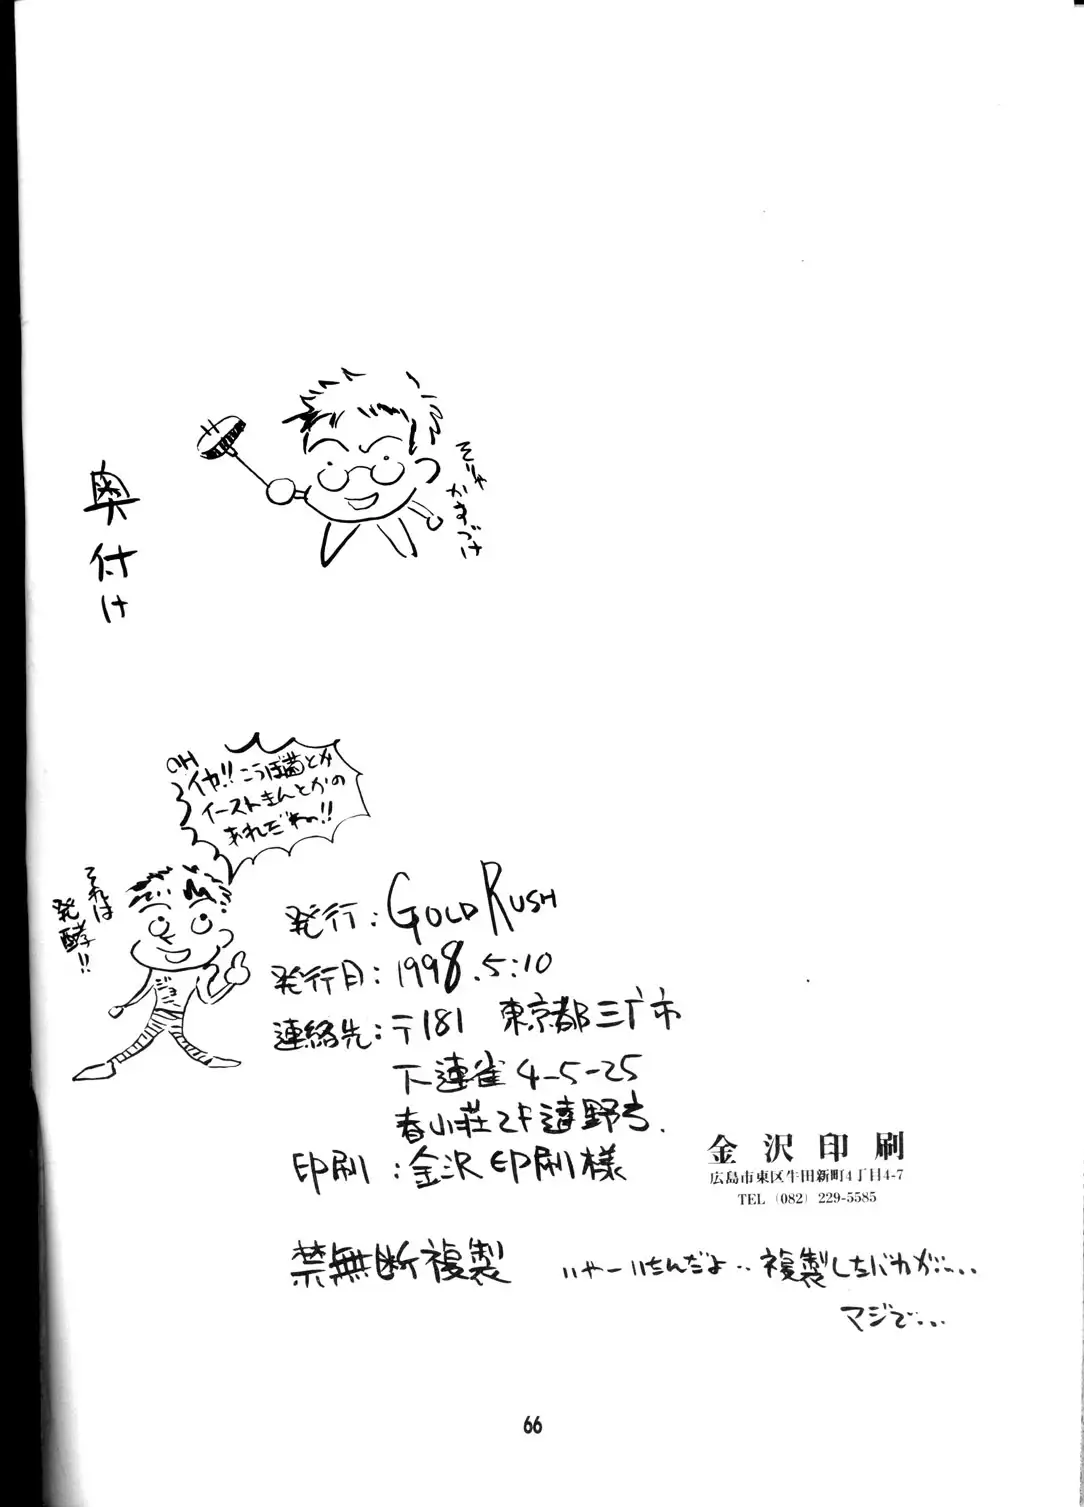 奥付け
そりゃ
かすづけ
OH
イヤ!!こうぼ菌とか
イーストきんとかの
あれだわ!!
それは
発酵!!
ジョ
発行：GOLD RUSH
発行日：1998.5.10
連絡先：〒181 東京都三广市
下連雀4-5-25
春山荘2F遠野方.
印刷：金沢印刷様
金沢印刷
広島市東区牛田新町4丁目4-7
TEL (082) 229-5585
禁無断複製
いやーいたんだよ..複製したバカが....
マジで...
66